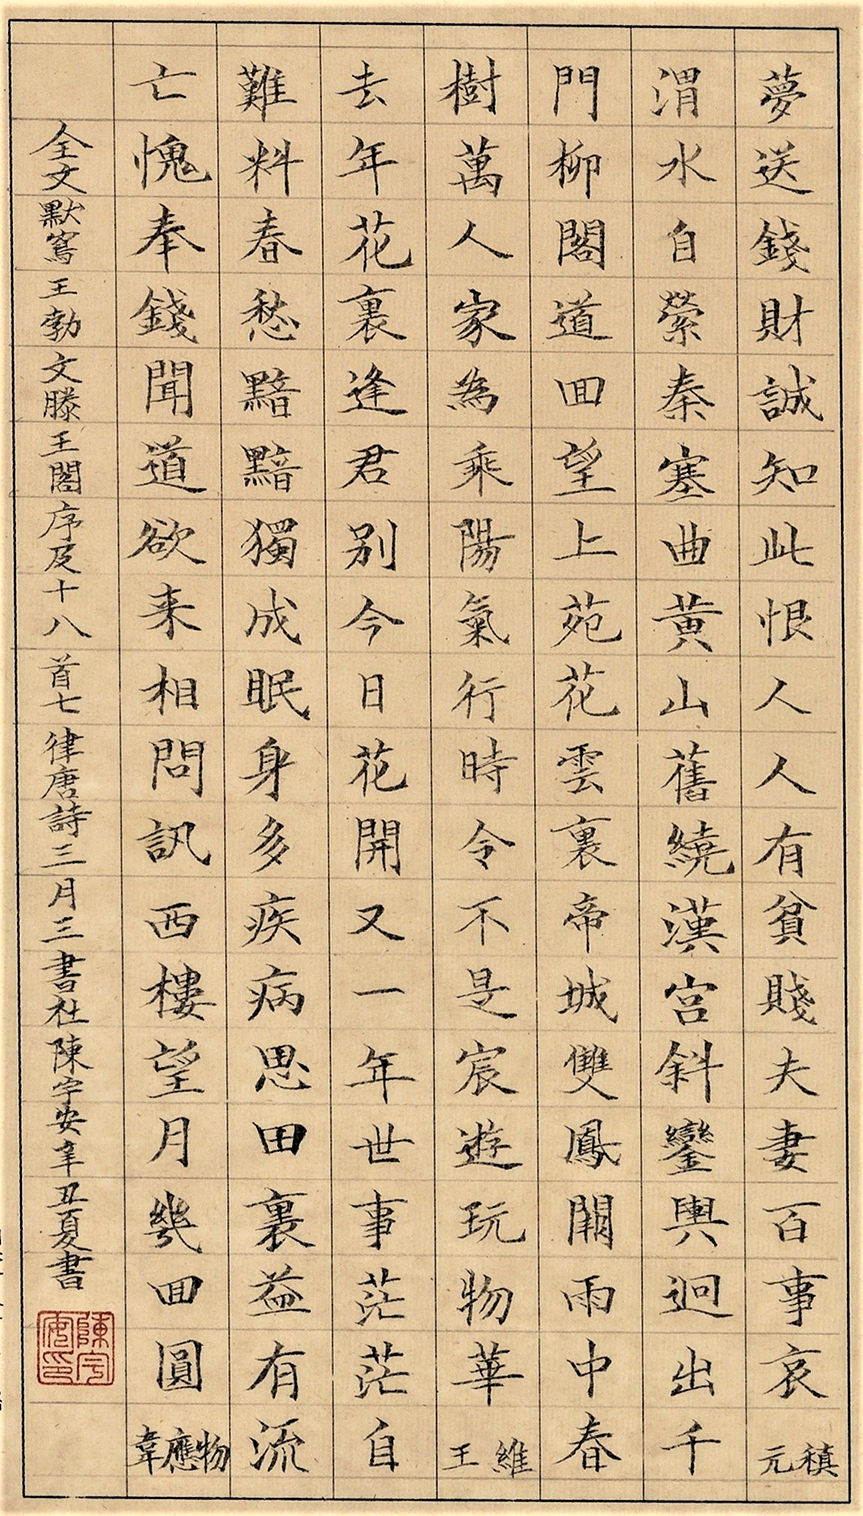 夢送錢財誠知此恨人人有貧賤夫妻百事哀元稹
渭水自縈秦塞曲黃山舊繞漢宮斜鑾輿迥出千
門柳閣道回望上苑花雲裏帝城雙鳳闕雨中春
樹萬人家為乘陽氣行時令不是宸遊玩物華王維
去年花裏逢君別今日花開又一年世事茫茫自
難料春愁黯黯獨成眠身多疾病思田裏益有流
亡愧奉錢聞道欲来相問訊西樓望月幾回圓韋應物
全文默寫王勃文滕王閣序及十八首七律唐詩三月三書社陳宇安辛丑夏書
陳宇安印